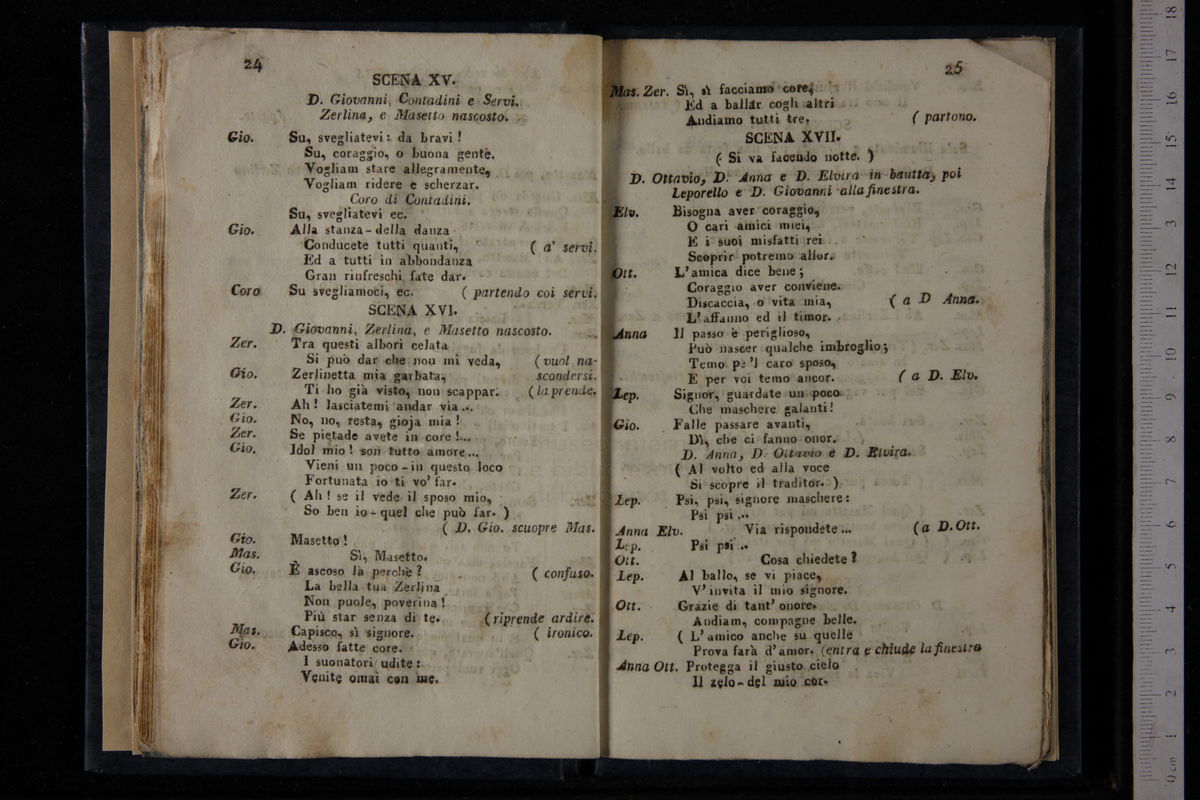 24
SCENA XV.
D. Giovanni, Contadini e Servi.
Zerlina, e Masetto nascosto.
Gio. Su, svegliatevi: da bravi!
Su, coraggio, o buona gente.
Vogliam stare allegramente,
Vogliam ridere e scherzar.
Coro di Contadini.
Su, svegliatevi ec.
Gio. Alla stanza-della danza
Conducete tutti quanti, ( a' servi.
Ed a tutti in abbondanza
Gran rinfreschi fate dar.
Coro Su svegliamoci, ec. ( partendo coi servi.
SCENA XVI.
D. Giovanni, Zerlina, e Masetto nascosto.
Zer. Tra questi albori celata
Si può dar che non mi veda, (vuol na-
Gio. Zerlinetta mia garbata, scondersi.
Ti ho già visto, non scappar. (la prende.
Zer. Ah! lasciatemi andar via...
Gio. No, no, resta, gioja mia!
Zer. Se pietade avete in core!...
Gio. Idol mio! son tutto amore...
Vieni un poco-in questo loco
Fortunata io ti vo' far.
Zer. ( Ah! se il vede il sposo mio,
So ben io-quel che può far. )
( D. Gio. scuopre Mas.
Gio. Masetto!
Mas. Sì, Masetto.
Gio. E ascoso là perchè? ( confuso.
La bella tua Zerlina
Non puole, poverina!
Più star senza di te. (riprende ardire.
Mas. Capisco, sì signore. ( ironico.
Gio. Adesso fatte core.
I suonatori udite:
Venite omai con me.
25
Mas. Zer. Sì, sì facciamo core,
Ed a ballar cogli altri
Andiamo tutti tre. ( partono.
SCENA XVII.
( Si va facendo notte. )
D. Ottavio, D. Anna e D. Elvira in bautta, poi
Leporello e D. Giovanni alla finestra.
Elv. Bisogna aver coraggio,
O cari amici miei,
E i suoi misfatti rei
Scoprir potremo allor.
Ott. L'amica dice bene;
Coraggio aver conviene.
Discaccia, o vita mia, ( a D Anna.
L'affanno ed il timor.
Anna Il passo è periglioso,
Può nascer qualche imbroglio;
Temo pe 'l caro sposo,
E per voi temo ancor. ( a D. Elv.
Lep. Signor, guardate un poco
Che maschere galanti!
Gio. Falle passare avanti,
Dì, che ci fanno onor.
D. Anna, D. Ottavio e D. Elvira.
( Al volto ed alla voce
Si scopre il traditor. )
Lep. Psi, psi, signore maschere:
Psi psi...
Anna Elv. Via rispondete... (a D. Ott.
Lep. Psi psi..
Ott. Cosa chiedete?
Lep. Al ballo, se vi piace,
V'invita il mio signore.
Ott. Grazie di tant' onore.
Andiam, compagne belle.
Lep. ( L'amico anche su quelle
Prova farà d'amor. (entra e chiude la finestra
Anna Ott. Protegga il giusto cielo
Il zelo-del mio cor.